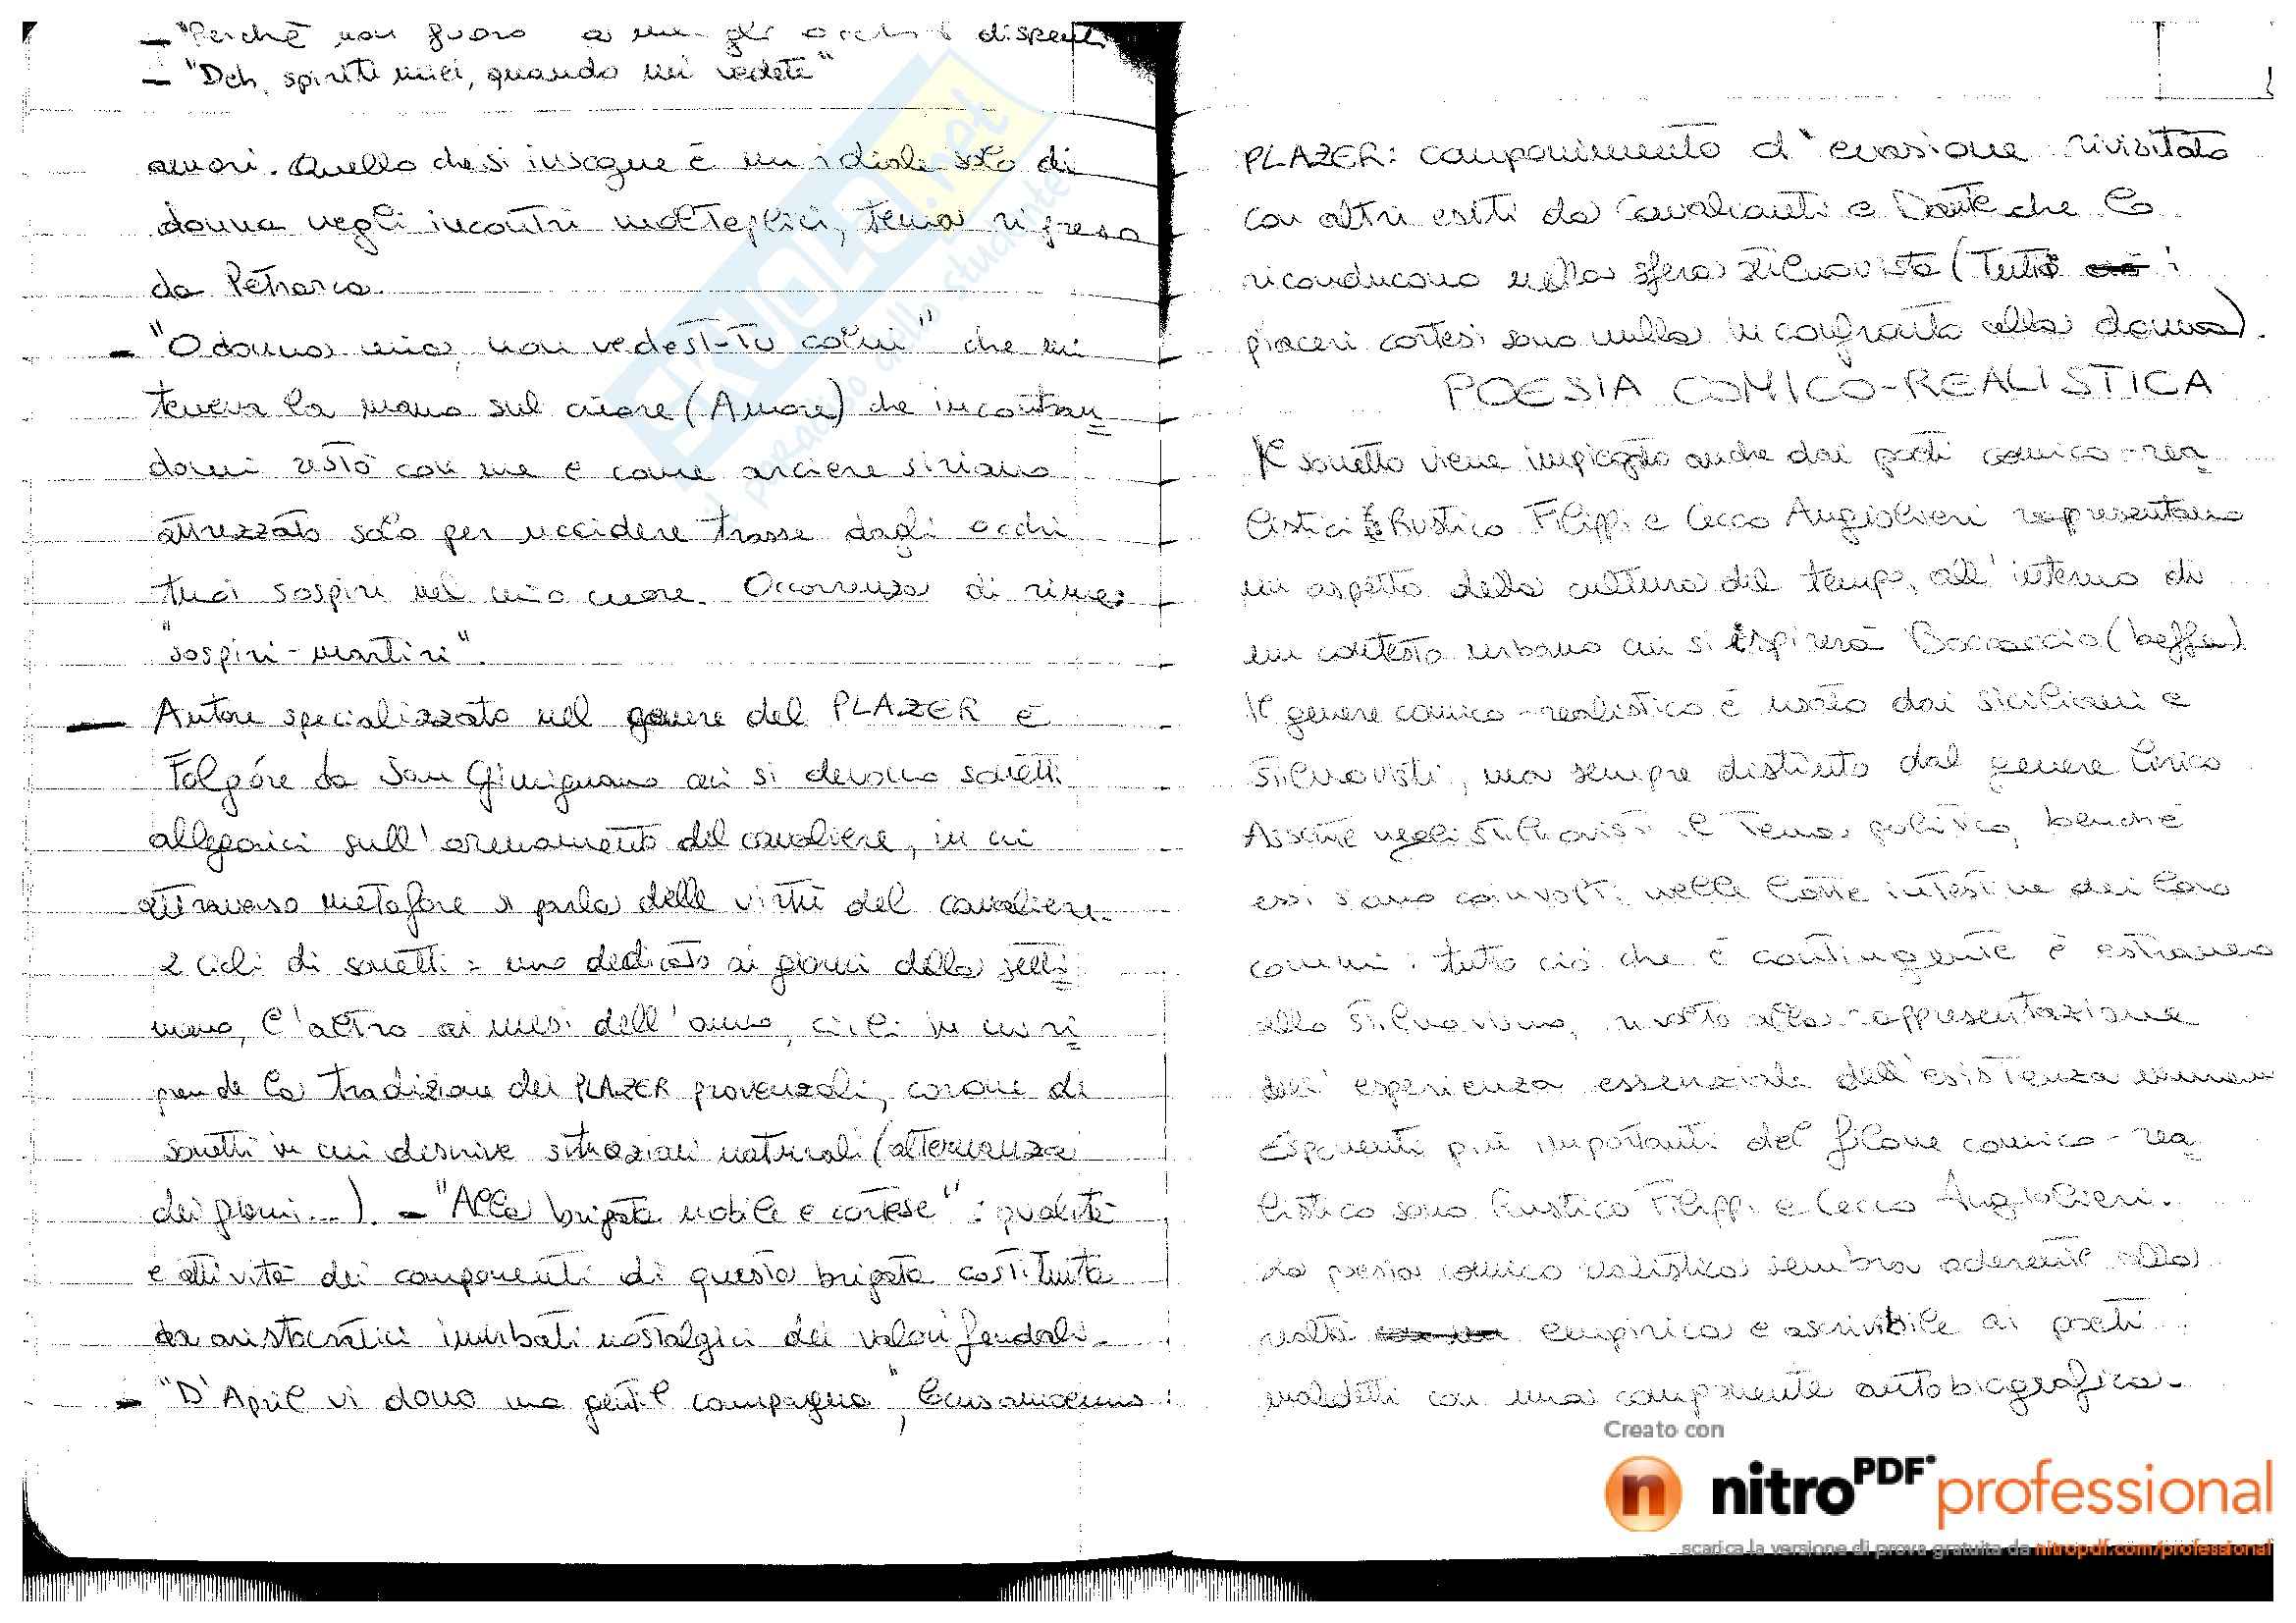 - "Perché non fuoro a me gli occhi dispenti
- "Deh, spiriti miei, quando mi vedete"
amori. Quello che si insegue è un ideale solo di
donna negli incontri molteplici, tema ripreso
da Petrarca.
- "O donna mia, non vedesti-tu colui" che mi
teneva la mano sul cuore (Amore) che incontran
domi restò con me e come arciere siriano
attrezzato solo per uccidere trasse dagli occhi
tuoi sospiri nel mio cuore. Occorrenza di rime:
"sospiri-martiri".
- Autore specializzato nel genere del PLAZER è
Folgóre da San Gimignano cui si devono sonetti
allegorici sull'armamento del cavaliere, in cui
attraverso metafore si parla delle virtù del cavaliere.
2 cicli di sonetti: uno dedicato ai giorni della setti
mana, l'altro ai mesi dell'anno, cicli in cui ri
prende la tradizione dei PLAZER provenzali, corone di
sonetti in cui descrive situazioni naturali (alternanza
dei giorni...). - "Alla brigata nobile e cortese": qualità
e attività dei componenti di questa brigata costituita
da aristocratici inurbati nostalgici dei valori feudali.
- "D'April vi dono la gentil campagna",
PLAZER: componimento d'evasione rivisitato
con altri esiti da Cavalcanti e Dante che lo
riconducono nella sfera stilnovista (Tutti i
piaceri cortesi sono nulla in confronto alla donna).
POESIA COMICO-REALISTICA
Il sonetto viene impiegato anche dai poeti comico-rea
listici Rustico Filippi e Cecco Angiolieri rappresentano
un aspetto della cultura del tempo, all'interno di
un contesto urbano cui si ispirerà Boccaccio (beffa)
Il genere comico-realistico è usato dai siciliani e
stilnovisti, ma sempre distinto dal genere lirico
Assente negli stilnovisti il tema politico, benché
essi siano coinvolti nelle lotte intestine dei loro
comuni: tutto ciò che è contingente è estraneo
allo stilnovismo, rivolto alla rappresentazione
dell'esperienza essenziale dell'esistenza umana
Esponenti più importanti del filone comico-rea
listico sono Rustico Filippi e Cecco Angiolieri.
La poesia comico realistica sembra aderente alla
realtà empirica e ascrivibile ai poeti
maledetti con una componente autobiografica.
Creato con
nitroPDF professional
scarica la versione di prova gratuita da nitropdf.com/professional